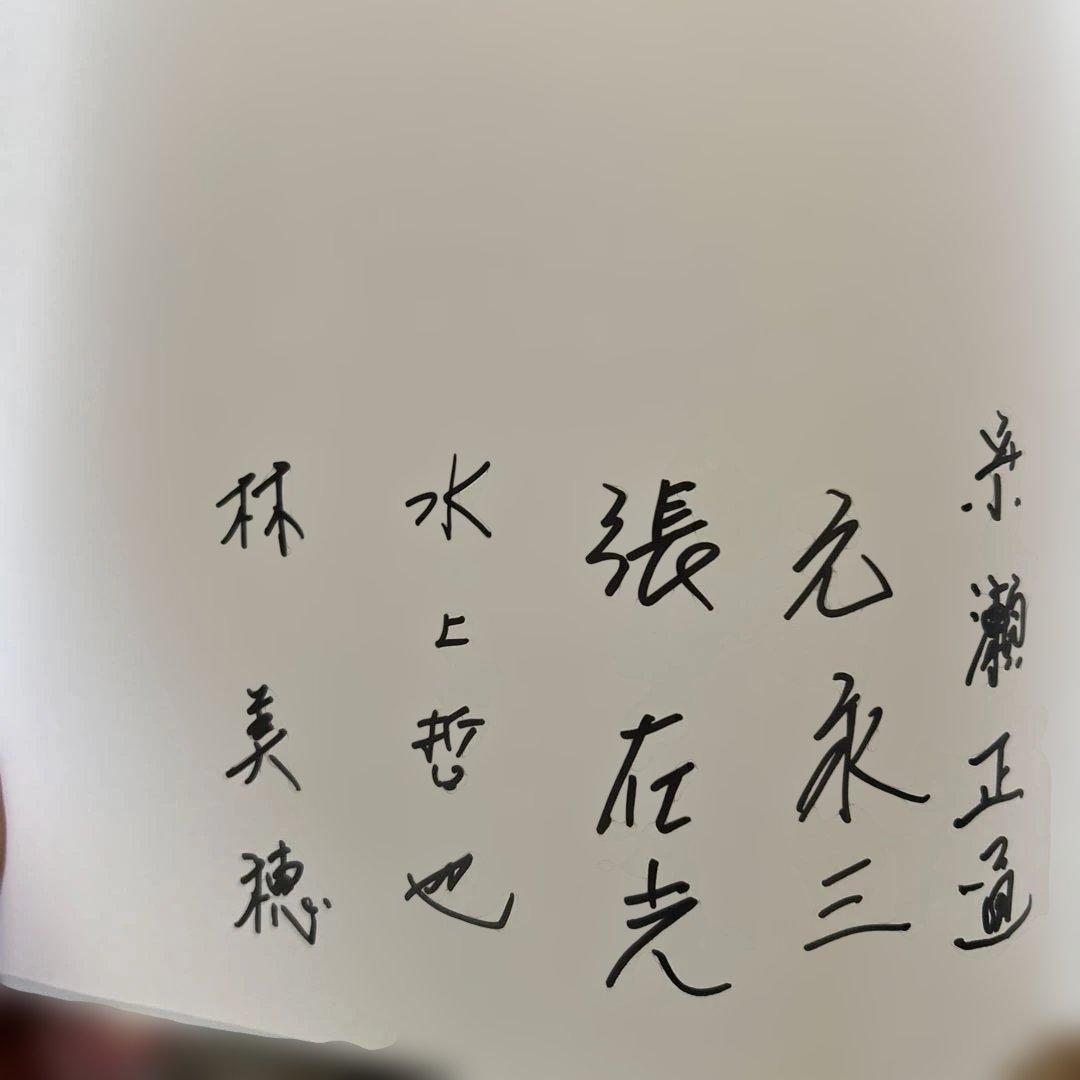 瀬正通
元永三
張在光
水上哲也
林美穂